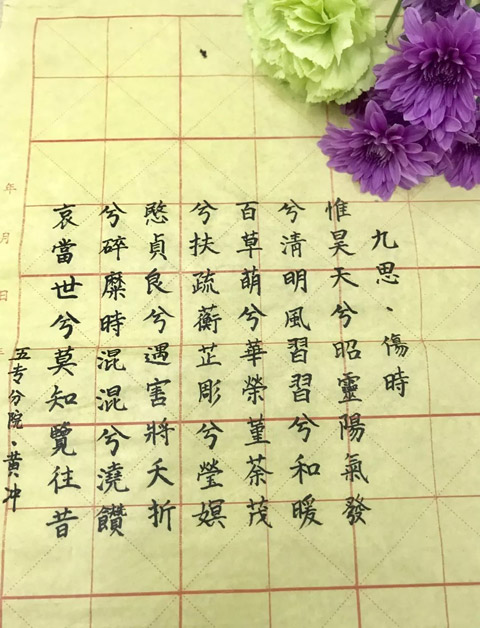 九思·傷時
惟昊天兮昭靈陽氣發
兮清明風習習兮和暖
百草萌兮華榮堇荼茂
兮扶疏蘅芷彫兮瑩嫇
愍貞良兮遇害將夭折
兮碎糜時混混兮澆饡
哀當世兮莫知覽往昔
五专分院·黄冲
年月日